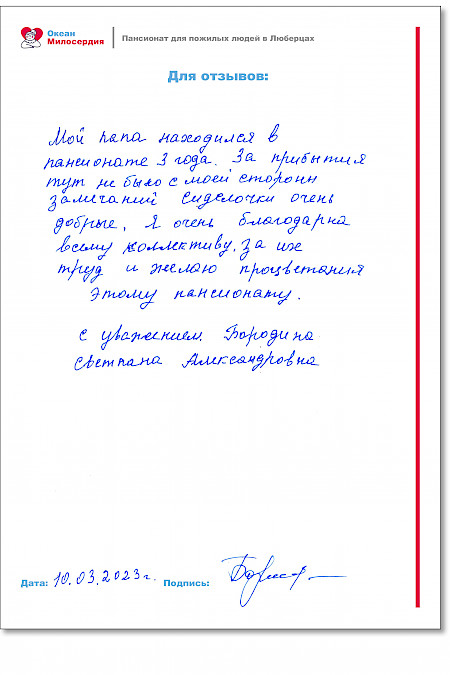 Океан
Милосердия
Пансионат для пожилых людей в Люберцах
Для отзывов:
Мой папа находился в
пансионате 3 года. За прибытия
тут не было с моей сторон
замечаний Сиделочки очень
добрые. Я очень благодарна
всему коллективу, за их
труд и желаю процветания
Этому пансионату.
с уважением Бородина
Светлана Александровна
Дата: 10.03.2023г. Подпись: